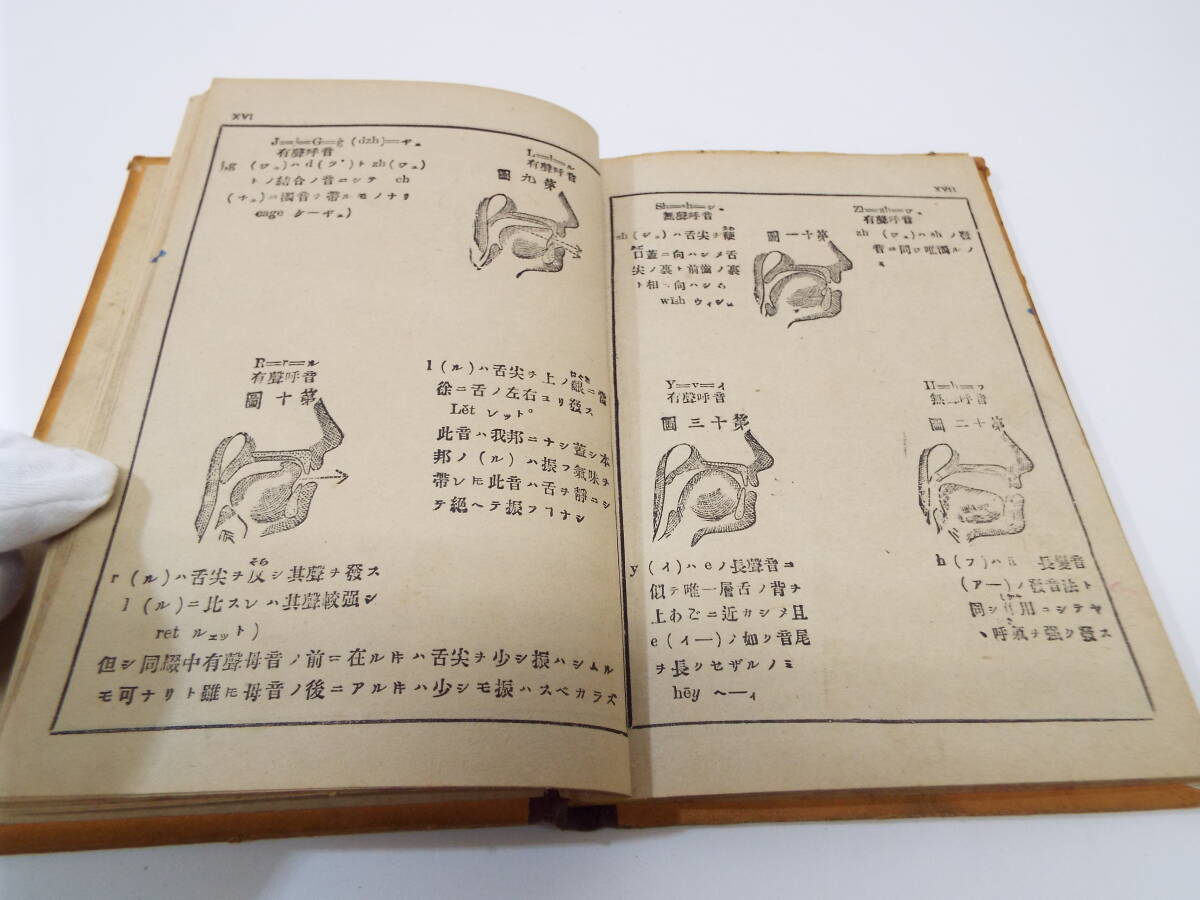 XVI
J=j=G=g (dzh)=ヂュ
有聲呼音
j,g (ヂュ)ハd(ヅ)ト zh(ジュ)
トノ結合ノ音ニシテ ch
(チュ)ニ濁音ヲ帶ルモノナリ
cage ケーヂュ)
L=l=ル
有聲呼音
第九圖
l(ル)ハ舌尖ヲ上ノ齦ニ當
徐ニ舌ノ左右ヨリ發ス
Lĕt レット。
此音ハ我邦ニナシ蓋シ本
邦ノ(ル)ハ振フ氣味ヲ
帶レ𪜈此音ハ舌ヲ靜ニシ
テ絕ヘテ振フヿナシ
R=r=ル
有聲呼音
第十圖
r(ル)ハ舌尖ヲ反シ其聲ヲ發ス
l(ル)ニ比スレハ其聲較强シ
ret ルェット)
但シ同綴中有聲母音ノ前ニ在ル𪜈ハ舌尖ヲ少シ振ハシムル
モ可ナリト雖𪜈母音ノ後ニアル𪜈ハ少シモ振ハスベカラズ
XVII
Sh=sh=シュ
無聲呼音
第十一圖
sh(シュ)ハ舌尖ヲ硬
口蓋ニ向ハシメ舌
尖ノ裏ト前齒ノ裏
ト相向ハシム
wish ウィシュ
Zh=zh=ジュ
有聲呼音
zh(ジュ)ハshノ發
音ニ同ジ唯濁ルノ
ミ
Y=y=イ
有聲呼音
第十三圖
y(イ)ハeノ長聲音ニ
似テ唯一層舌ノ背ヲ
上あごニ近カシメ且
e(イー)ノ如ク音尾
ヲ長クセザルノミ
hēy ヘーィ
H=h=フ
無聲呼音
第十二圖
h(フ)ハä 長聲音
(アー)ノ發音法ト
同シ用ニシテヤヤ
呼氣ヲ强ク發ス